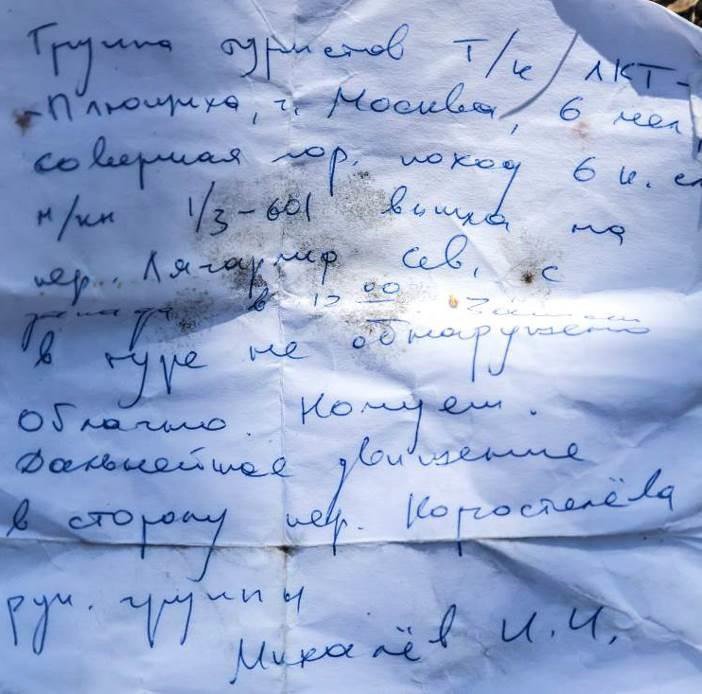 Группа туристов Т/к ЛКТ-
-Плющиха, г. Москва, 6 чел,
совершая гор. поход 6 к. сл
м/кн 1/3-601 вышла на
пер. Лягарпир Сев, с
запада в 00
в туре не обнаружено
Облачно. Ночуем.
Дальнейшее движение
в сторону пер. Коростелёва
рук. группы
Михалёв И.И.